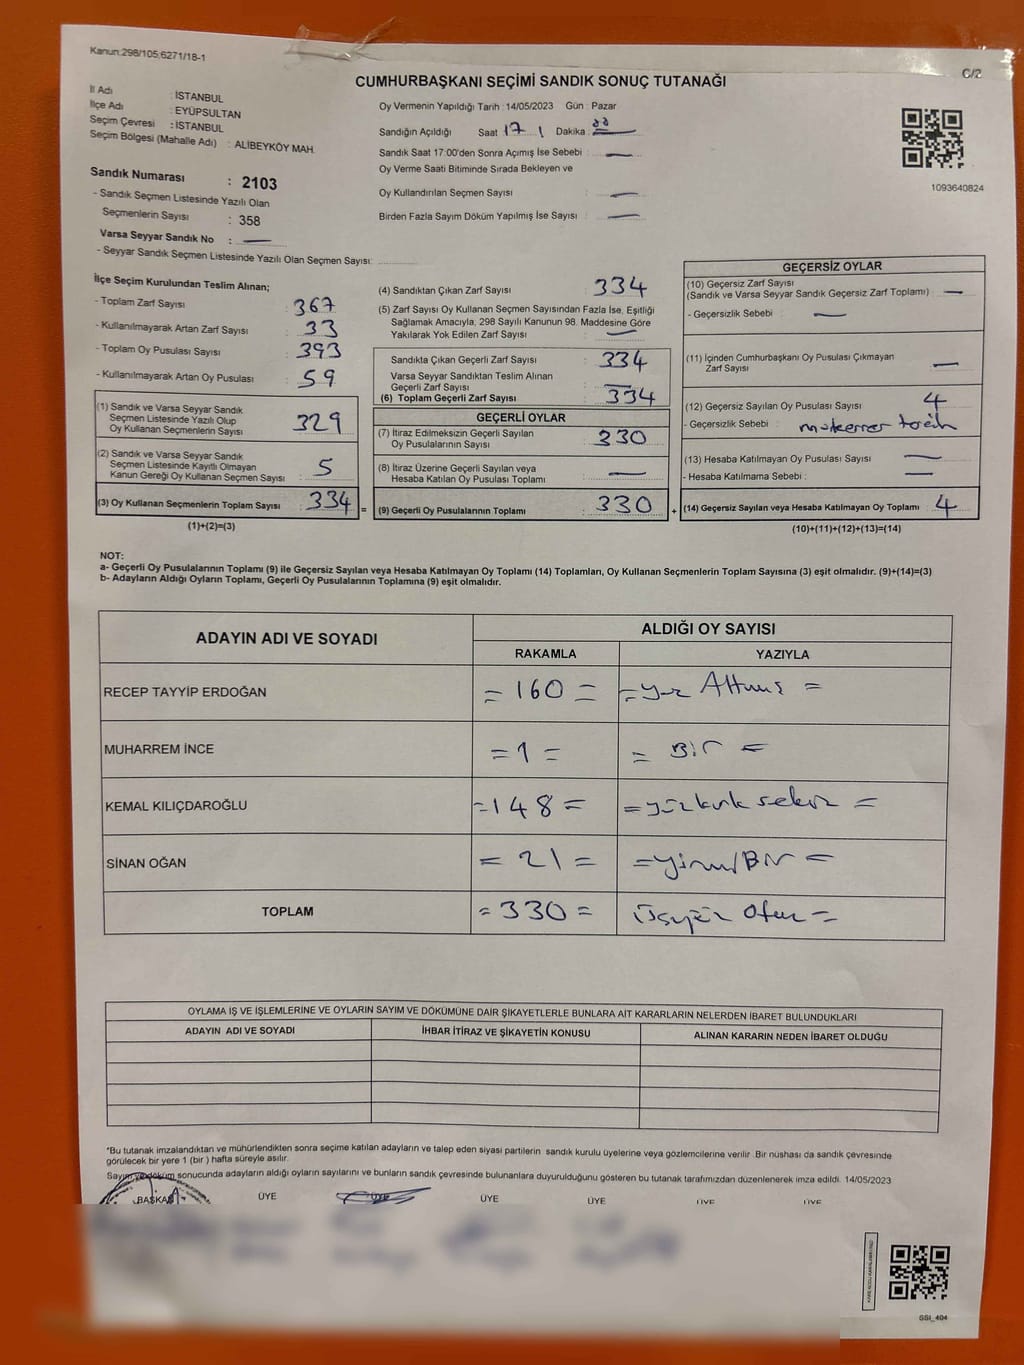 Kanun:298/105;6271/18-1
C/2
CUMHURBAŞKANI SEÇİMİ SANDIK SONUÇ TUTANAĞI
İl Adı : İSTANBUL
İlçe Adı : EYÜPSULTAN
Seçim Çevresi : İSTANBUL
Seçim Bölgesi (Mahalle Adı) : ALİBEYKÖY MAH.
Sandık Numarası : 2103
- Sandık Seçmen Listesinde Yazılı Olan
Seçmenlerin Sayısı : 358
Varsa Seyyar Sandık No : —
- Seyyar Sandık Seçmen Listesinde Yazılı Olan Seçmen Sayısı:
Oy Vermenin Yapıldığı Tarih : 14/05/2023 Gün : Pazar
Sandığın Açıldığı Saat 17 Dakika :
Sandık Saat 17:00'den Sonra Açımış İse Sebebi : —
Oy Verme Saati Bitiminde Sırada Bekleyen ve
Oy Kullandırılan Seçmen Sayısı : —
Birden Fazla Sayım Döküm Yapılmış İse Sayısı : —
1093640824
İlçe Seçim Kurulundan Teslim Alınan;
- Toplam Zarf Sayısı : 367
- Kullanılmayarak Artan Zarf Sayısı : 33
- Toplam Oy Pusulası Sayısı : 393
- Kullanılmayarak Artan Oy Pusulası : 59
(1) Sandık ve Varsa Seyyar Sandık
Seçmen Listesinde Yazılı Olup
Oy Kullanan Seçmenlerin Sayısı : 329
(2) Sandık ve Varsa Seyyar Sandık
Seçmen Listesinde Kayıtlı Olmayan
Kanun Gereği Oy Kullanan Seçmen Sayısı : 5
(3) Oy Kullanan Seçmenlerin Toplam Sayısı : 334
(1)+(2)=(3)
=
(4) Sandıktan Çıkan Zarf Sayısı : 334
(5) Zarf Sayısı Oy Kullanan Seçmen Sayısından Fazla İse, Eşitliği
Sağlamak Amacıyla, 298 Sayılı Kanunun 98. Maddesine Göre
Yakılarak Yok Edilen Zarf Sayısı : —
Sandıkta Çıkan Geçerli Zarf Sayısı : 334
Varsa Seyyar Sandıktan Teslim Alınan
Geçerli Zarf Sayısı : —
(6) Toplam Geçerli Zarf Sayısı : 334
GEÇERLİ OYLAR
(7) İtiraz Edilmeksizin Geçerli Sayılan
Oy Pusulalarının Sayısı : 330
(8) İtiraz Üzerine Geçerli Sayılan veya
Hesaba Katılan Oy Pusulası Toplamı : —
(9) Geçerli Oy Pusulalarının Toplamı : 330
+
GEÇERSİZ OYLAR
(10) Geçersiz Zarf Sayısı
(Sandık ve Varsa Seyyar Sandık Geçersiz Zarf Toplamı) : —
- Geçersizlik Sebebi : —
(11) İçinden Cumhurbaşkanı Oy Pusulası Çıkmayan
Zarf Sayısı : —
(12) Geçersiz Sayılan Oy Pusulası Sayısı : 4
- Geçersizlik Sebebi : mükerrer tercih
(13) Hesaba Katılmayan Oy Pusulası Sayısı : —
- Hesaba Katılmama Sebebi : —
(14) Geçersiz Sayılan veya Hesaba Katılmayan Oy Toplamı : 4
(10)+(11)+(12)+(13)=(14)
NOT:
a- Geçerli Oy Pusulalarının Toplamı (9) ile Geçersiz Sayılan veya Hesaba Katılmayan Oy Toplamı (14) Toplamları, Oy Kullanan Seçmenlerin Toplam Sayısına (3) eşit olmalıdır. (9)+(14)=(3)
b- Adayların Aldığı Oyların Toplamı, Geçerli Oy Pusulalarının Toplamına (9) eşit olmalıdır.
ADAYIN ADI VE SOYADI
ALDIĞI OY SAYISI
RAKAMLA YAZIYLA
RECEP TAYYİP ERDOĞAN = 160 = = yüz Altmış =
MUHARREM İNCE = 1 = = Bir =
KEMAL KILIÇDAROĞLU = 148 = = yüz kırk sekiz =
SİNAN OĞAN = 21 = = yirmi Bir =
TOPLAM = 330 = üçyüz Otuz =
OYLAMA İŞ VE İŞLEMLERİNE VE OYLARIN SAYIM VE DÖKÜMÜNE DAİR ŞİKAYETLERLE BUNLARA AİT KARARLARIN NELERDEN İBARET BULUNDUKLARI
ADAYIN ADI VE SOYADI İHBAR İTİRAZ VE ŞİKAYETİN KONUSU ALINAN KARARIN NEDEN İBARET OLDUĞU
*Bu tutanak imzalandıktan ve mühürlendikten sonra seçime katılan adayların ve talep eden siyasi partilerin sandık kurulu üyelerine veya gözlemcilerine verilir. Bir nüshası da sandık çevresinde
görülecek bir yere 1 (bir ) hafta süreyle asılır.
Sayım ve döküm sonucunda adayların aldığı oyların sayılarını ve bunların sandık çevresinde bulunanlara duyurulduğunu gösteren bu tutanak tarafımızdan düzenlenerek imza edildi. 14/05/2023
BAŞKAN ÜYE ÜYE ÜYE ÜYE ÜYE ÜYE
SSI_404